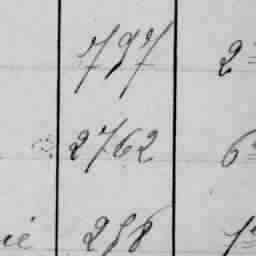 797 2
2762 6
ie 258 1